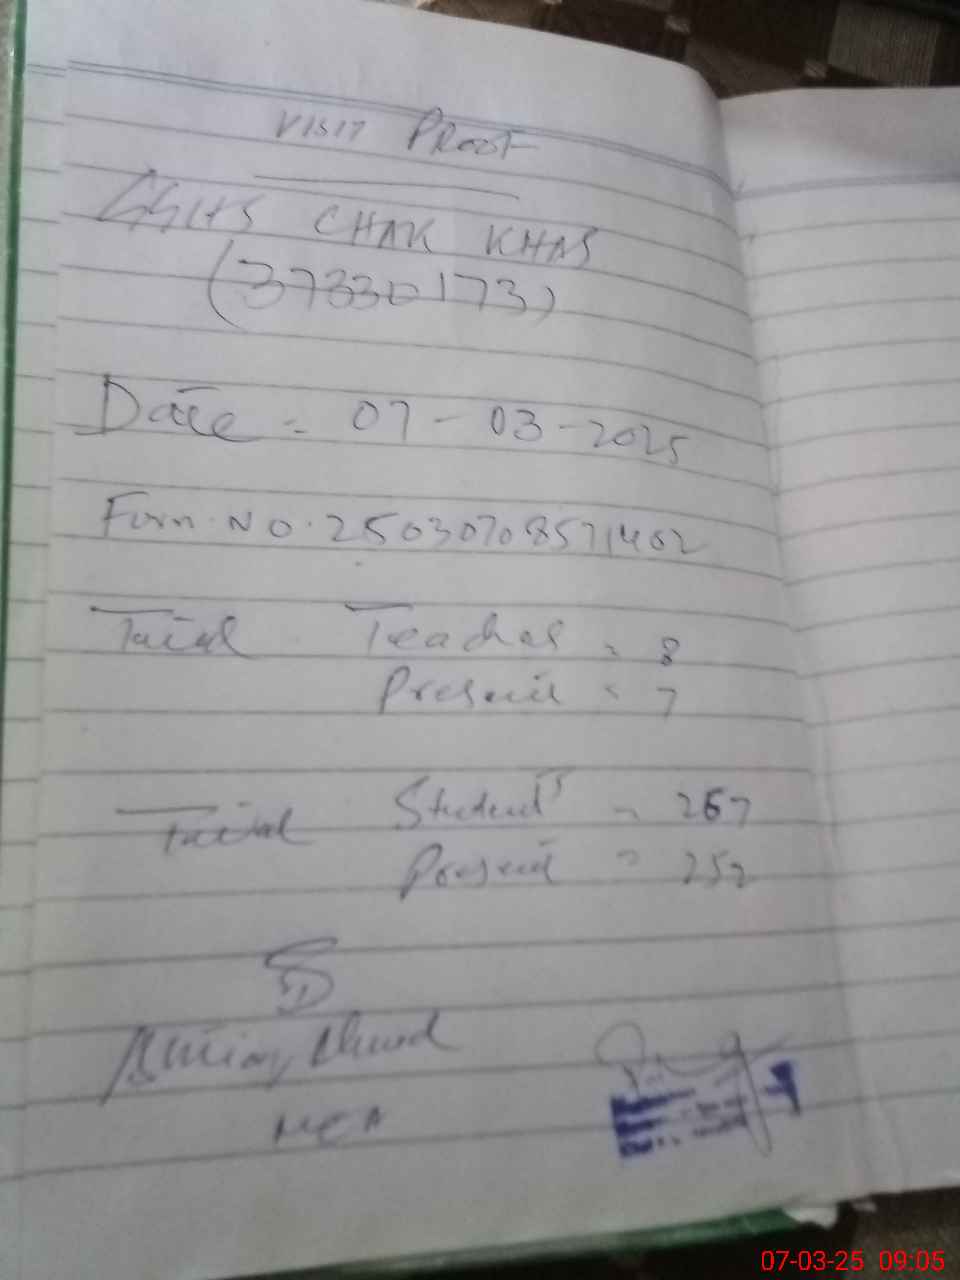 VISIT PROOF
GGHS CHAK KHAS
(37330173)
Date = 07-03-2025
Form.NO.25030708571402
Total Teacher = 8
Present = 7
Total Students = 267
Present = 252
Ahmed
MEA
07-03-25 09:05